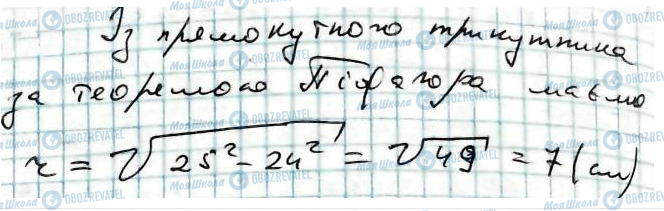 Із прямокутного трикутника
за теоремою Піфагора маємо
r = √25² - 24² = √49 = 7 (см)